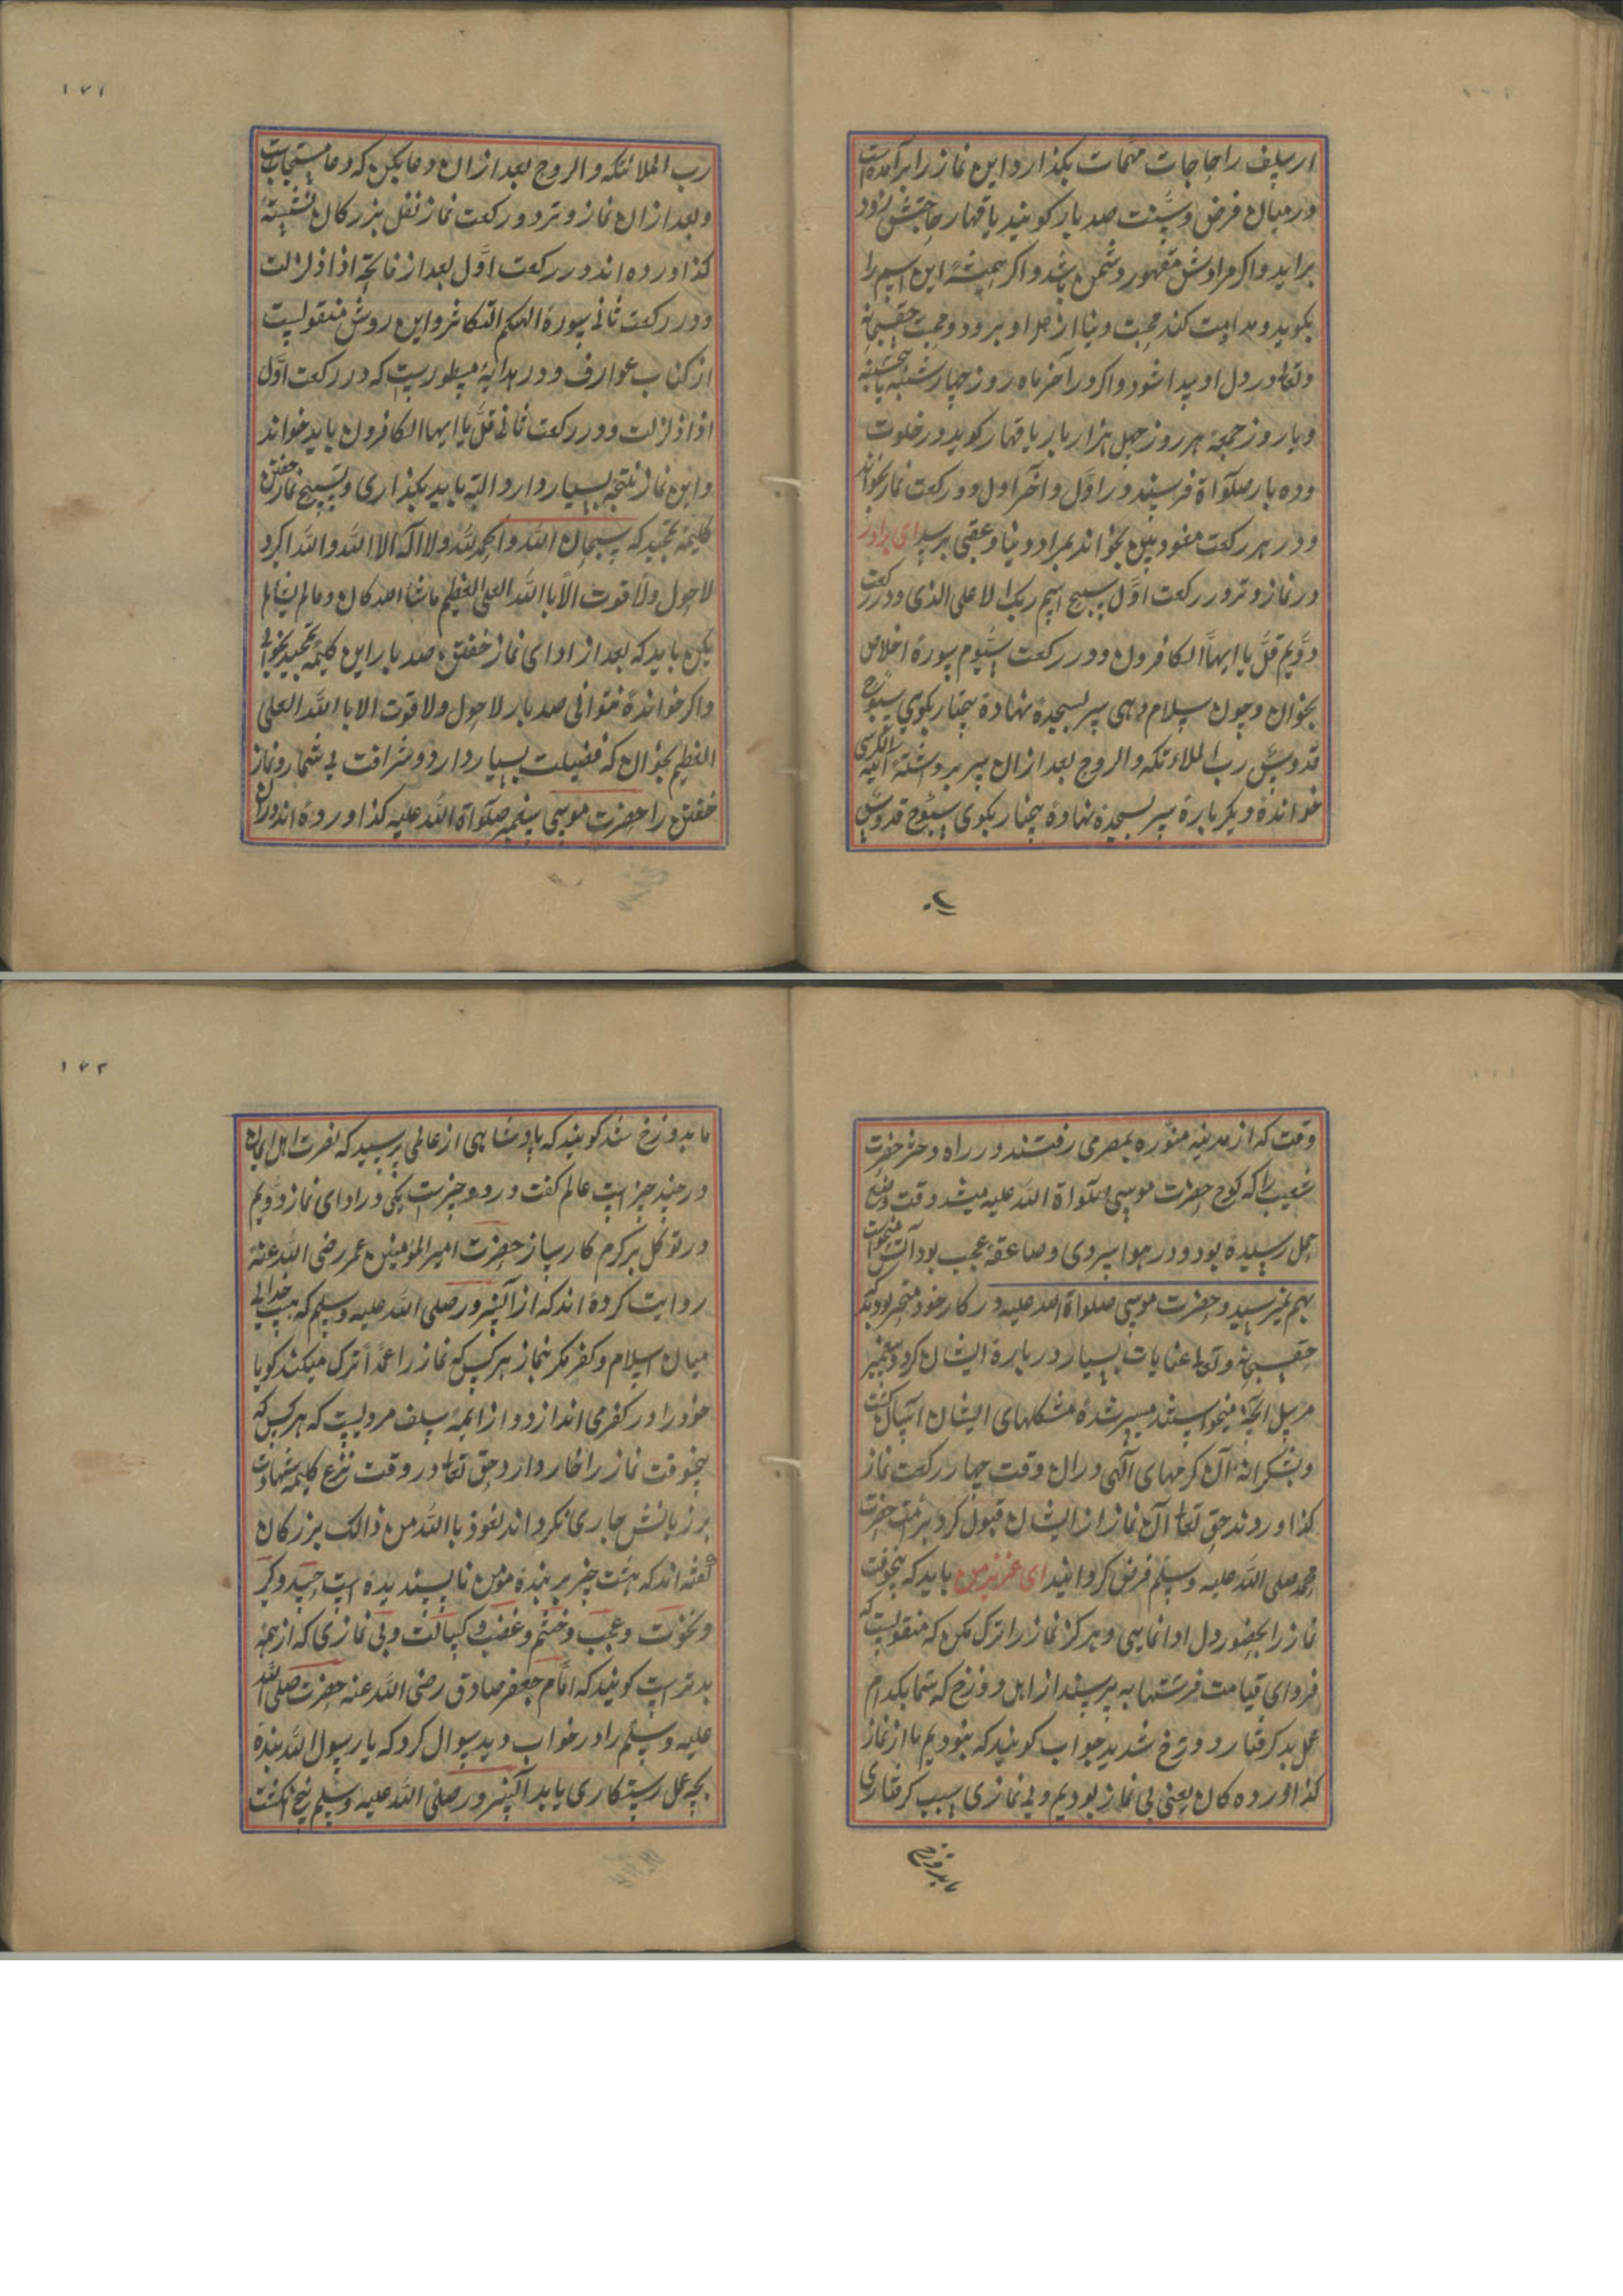 ار سلف را حاجات مهمات بکذارد و این نماز را برآمده است
در میان فرض و سنت صد بار کویند یا قهار حاجتش زود
براید و اکر مرادش مقهور دشمن باشد و اکر همیشه این اسم را
بکوید و مداومت کند محبت دنیا از دل او برود و محبت حق سبحانه
وتعالی در دل او پیدا شود و اکر در آخر ماه روز چهار شنبه یا پنجشنبه
و یا روز جمعه هر روز چهل هزار بار یا قهار کوید در خلوت
وده بار صلوآة فرستد در اوّل و آخر اول دو رکعت نماز بخواند
و در هر رکعت معوذتین بخواند بمراد دنیا و عقبی برسد ای برادر
در نماز وتر در رکعت اوّل سبح اسم ربک الاعلی الذی و در رکعت
دویم قل یا ایها الکافرون و در رکعت سیوم سوره اخلاص
بخوان و چون سلام دهی سر بسجده نهاده پنجبار بکوی سبوح
قدوس رب الملائکه والروح بعد از ان سر برداشته آیة الکرسی
خوانده دیکر باره سر بسجده نهاده پنجبار بکوی سبوح قدوس
رب
۱۷۱
رب الملائکه والروح بعد از ان دعا بکن که دعا مستجابست
و بعد از ان نماز وتر دو رکعت نماز نفل بزرکان نشسته
کذاورده اند در رکعت اوّل بعد از فاتحه اذا زلزلت
و در رکعت ثانی سورة الهکم التکاثر و این روش منقولیست
از کتاب عوارف و در هدایه مسطوریست که در رکعت اوّل
اذا زلزلت و در رکعت ثانی قل یا ایها الکافرون باید خواند
و این نماز نتیجه بسیار دارد البته باید بکذاری و تسبیح نماز خفتن
کلیمه تمجید که سبحان الله والحمد لله ولا اله الا الله والله اکبر و
لا حول ولا قوت الا با الله العلی العظیم ماشا الله کان وما لم یشالم
یکن باید که بعد از ادای نماز خفتن صد بار این کلیمه تمجید بخوانی
و اکر خوانده نتوانی صد بار لا حول ولا قوت الا با الله العلی
العظیم بخوان که فضیلت بسیار دارد و شرافت بی شمار و نماز
خفتن را حضرت موسی پیغمبر صلوآة الله علیه کذاورده اند دران
وقت که از مدینه منوره بمصر می رفتند در راه دختر حضرت
شعیب را که کوچ حضرت موسی صلوآة الله علیه میشد وقت وضع
حمل رسیده بود و در هوا سردی و صاعقه عجب بود آتش میخواست
بهم نمیرسید و حضرت موسی صلوآة الله علیه در کار خود متحیر بود که
حق سبحانه و تعالی عنایات بسیار در باره ایشان کرد و پیغمبر
مرسل انچه میخواستند میسر شده مشکلهای ایشان آسان کشت
و بشکرانه آن کرمهای آلهی دران وقت چهار رکعت نماز
کذاوردند حق تعالی آن نماز از ایشان قبول کرد بر امت حضرت
محمد صلی الله علیه وسلم فرض کردانید ای عزیز من باید که پنجوقت
نماز را بحضور دل ادا نمایی و هرکز نماز را ترک مکن که منقولیست که
فردای قیامت فرشتها به پرسند از اهل دوزخ که شما بکدام
عمل بد کرفتار دوزخ شدید جواب کویند که نبودیم ما از نماز
کذاورده کان یعنی بی نماز بودیم و بی نمازی سبب کرفتاری
ما بدوزخ
۱۷۲
ما بدوزخ شد کویند که پادشاهی از عالمی پرسید که نصرت اهل ایمان
در چند چیز است عالم کفت در دو چیزست یکی در ادای نماز دویم
در توکل بر کرم کارساز حضرت امیر المؤمنین عمر رضی الله عنه
روایت کرده اند که از آنسرور صلی الله علیه وسلم که نیست جدائی
میان اسلام و کفر مکر بنماز هر کس که نماز را عمداً ترک میکند کویا
خود را در کفر می اندازد و از ایمه سلف مرویست که هر کس که
پنجوقت نماز را خار دارد حق تعالی در وقت نزع کلیمه شهادت
بر زبانش جاری نکرداند نعوذ با الله من ذالک بزرکان
کفته اند که هشت چیز بر بنده مؤمن ناپسندیده است حسد و کبر
و نخوت و عجب و خشم و غضب و کسالت و بی نمازی که از همه
بدتر است کویند که امام جعفر صادق رضی الله عنه حضرت صلی الله
علیه وسلم را در خواب دید سوال کرد که یا رسول الله بنده
بچه عمل رستکاری یابد آنسرور صلی الله علیه وسلم پنج انکشت